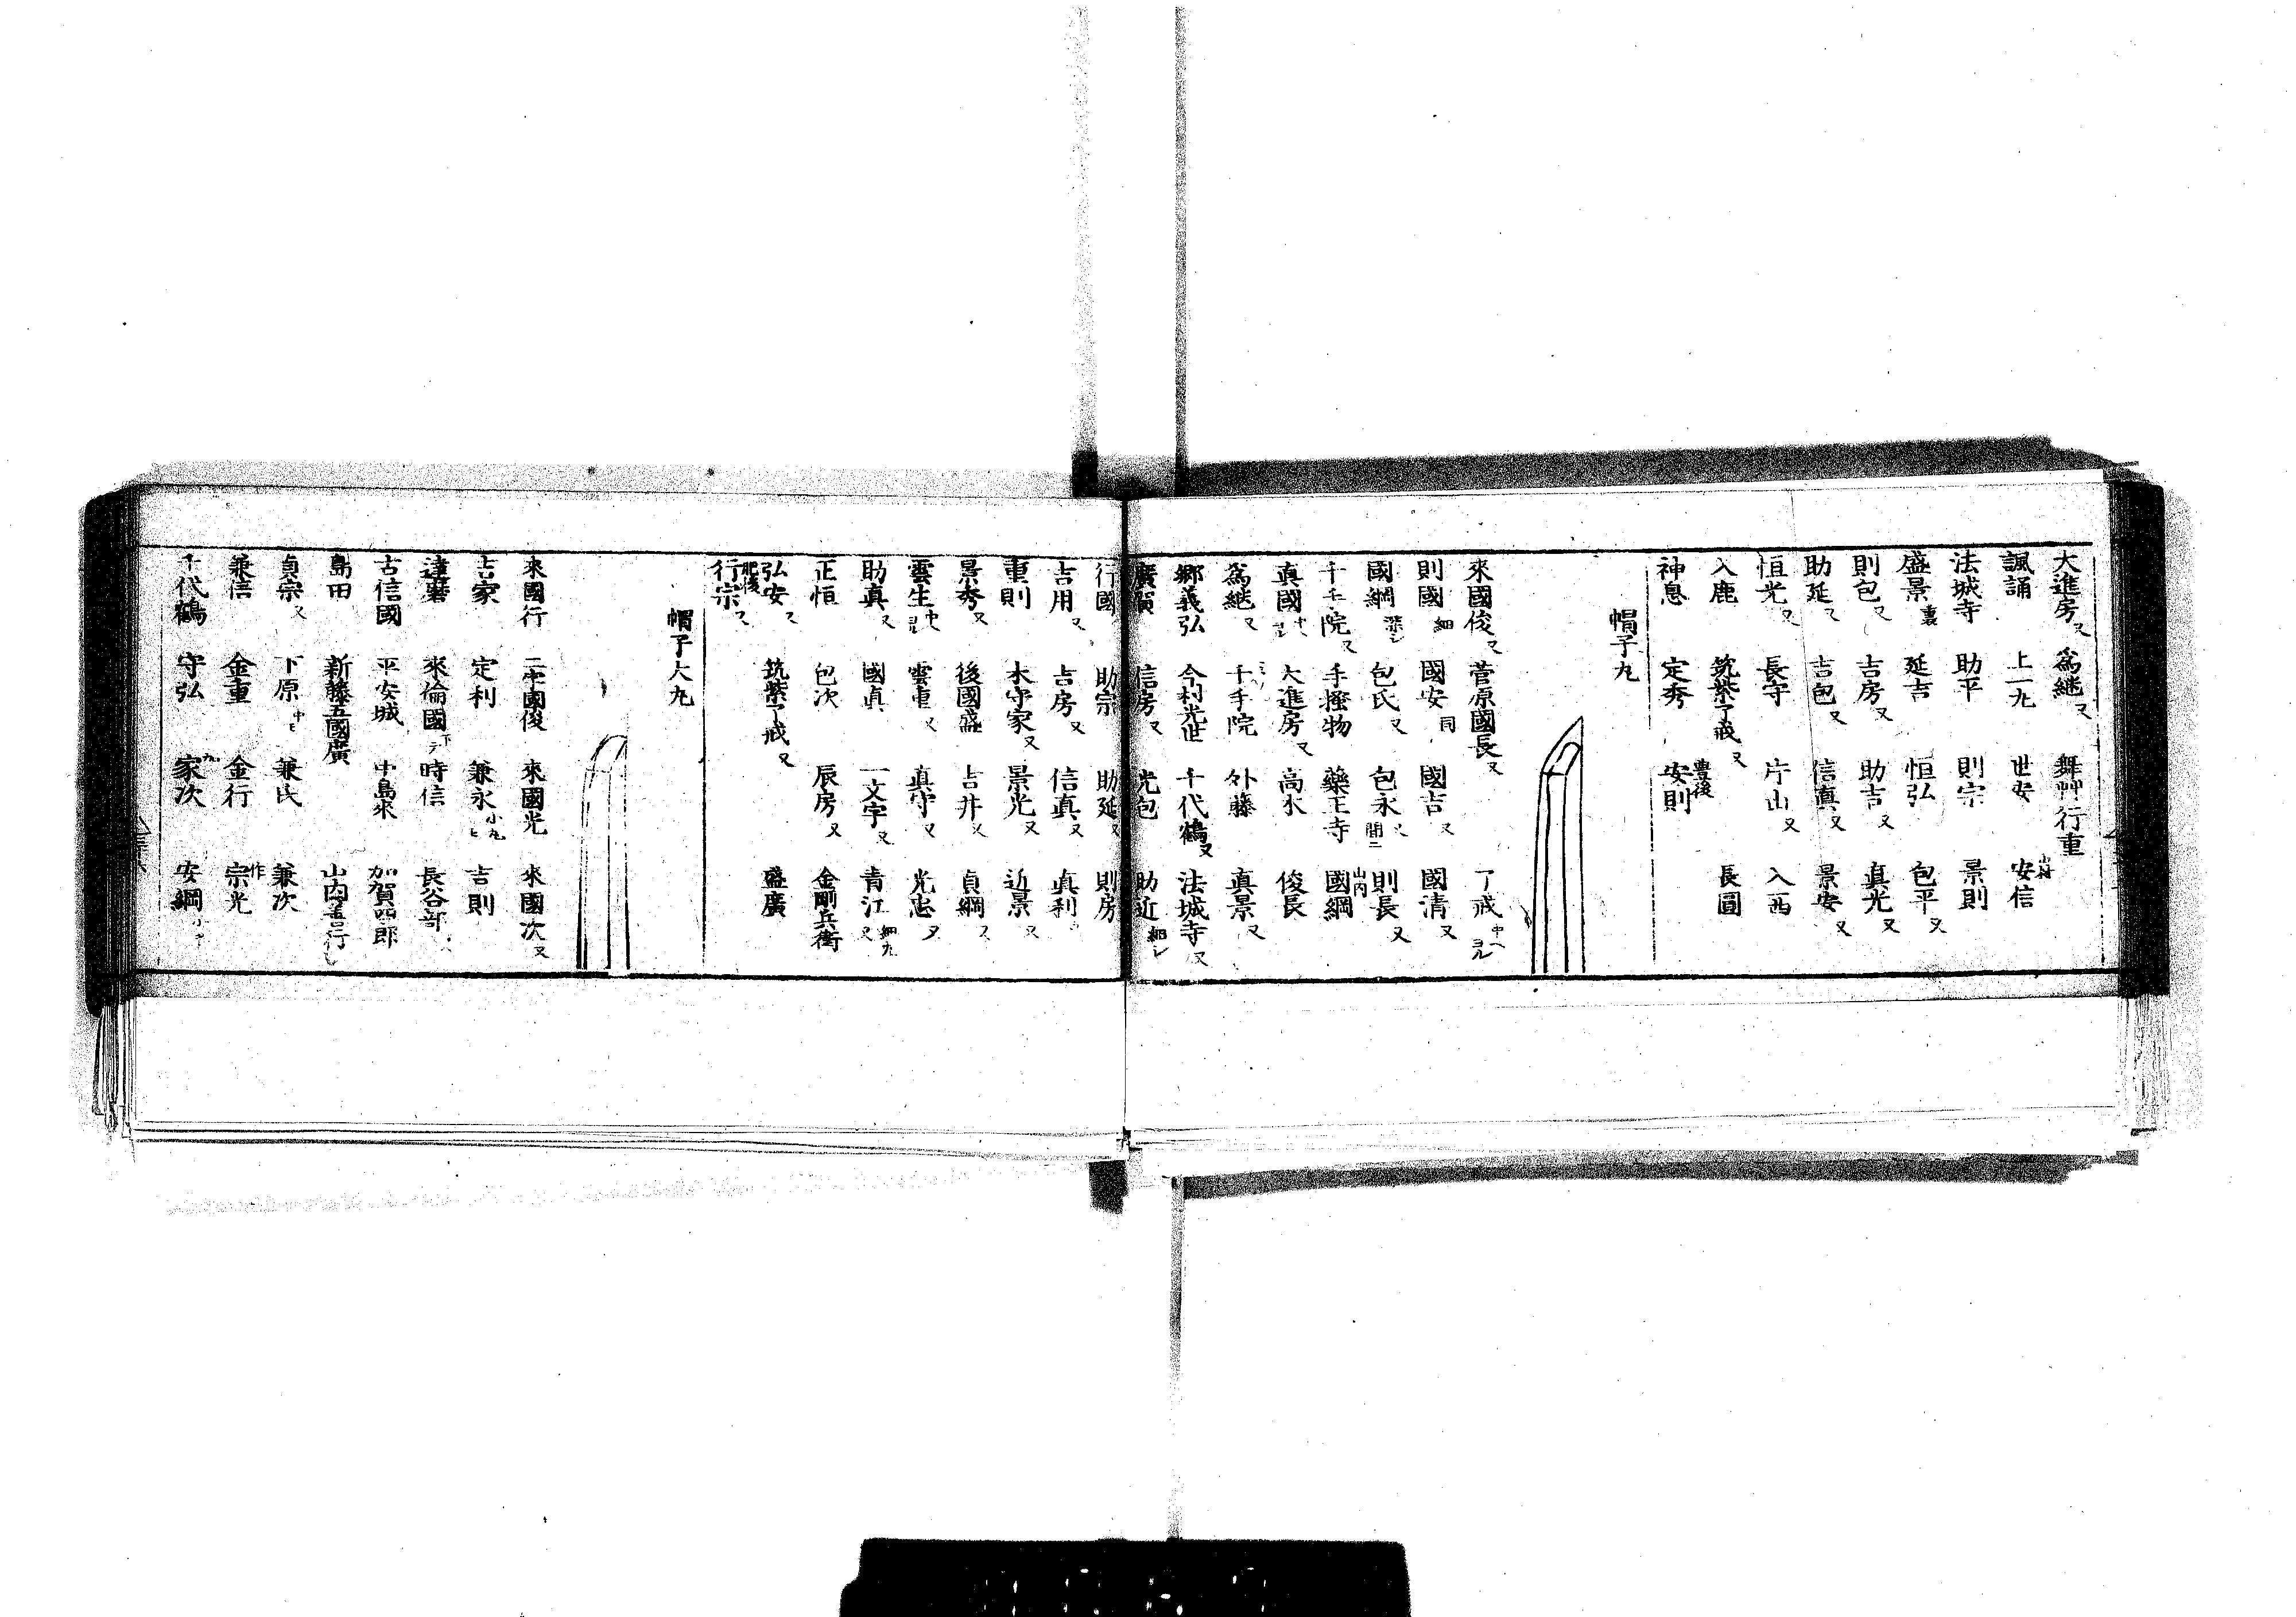 大進房又 爲継又 舞艸行重
諷誦 上一丸 世安 安信
法城寺 助平 則宗 景則
盛景裏 延吉 恒弘 包平又
則包又 吉房又 助吉又 真光又
助延又 吉包又 信真又 景安又
恒光又 長守 片山又 入西
入鹿 筑紫了戒又 長圓
神息 定秀 豊後安則
帽子丸
來國俊又 菅原國長又 了戒
則國細 國安同 國吉又 國清又
國綱 包氏又 包永 則長又
千手院又 手掻物 藥王寺 山内國綱
真國 大進房又 高水 俊長
爲継又 千手院 外藤 真景又
郷義弘 今村光世 千代鶴又 法城寺又
信房又 光包 助近
行國 助宗 助延又 則房
吉用又 吉房又 信真又 真利
重則 木守家又 景光又 近景又
景秀又 後國盛 吉井又 貞綱又
雲生 雲重又 真守又 光忠又
助真又 國真 一文字又 青江又細丸
正恒 包次 辰房又 金剛兵衛
弘安又 筑紫了戒又 盛廣
肥後行宗又
帽子大丸
來國行 二字國俊 來國光 來國次又
吉家 定利 兼永小丸 吉則
達磨 來倫國 時信 長谷部
古信國 平安城 中島來 加賀四郎
島田 新藤五國廣 山内善行
貞宗又 下原 兼氏 兼次
兼信 金重 金行 宗光
千代鶴 守弘 家次 安綱